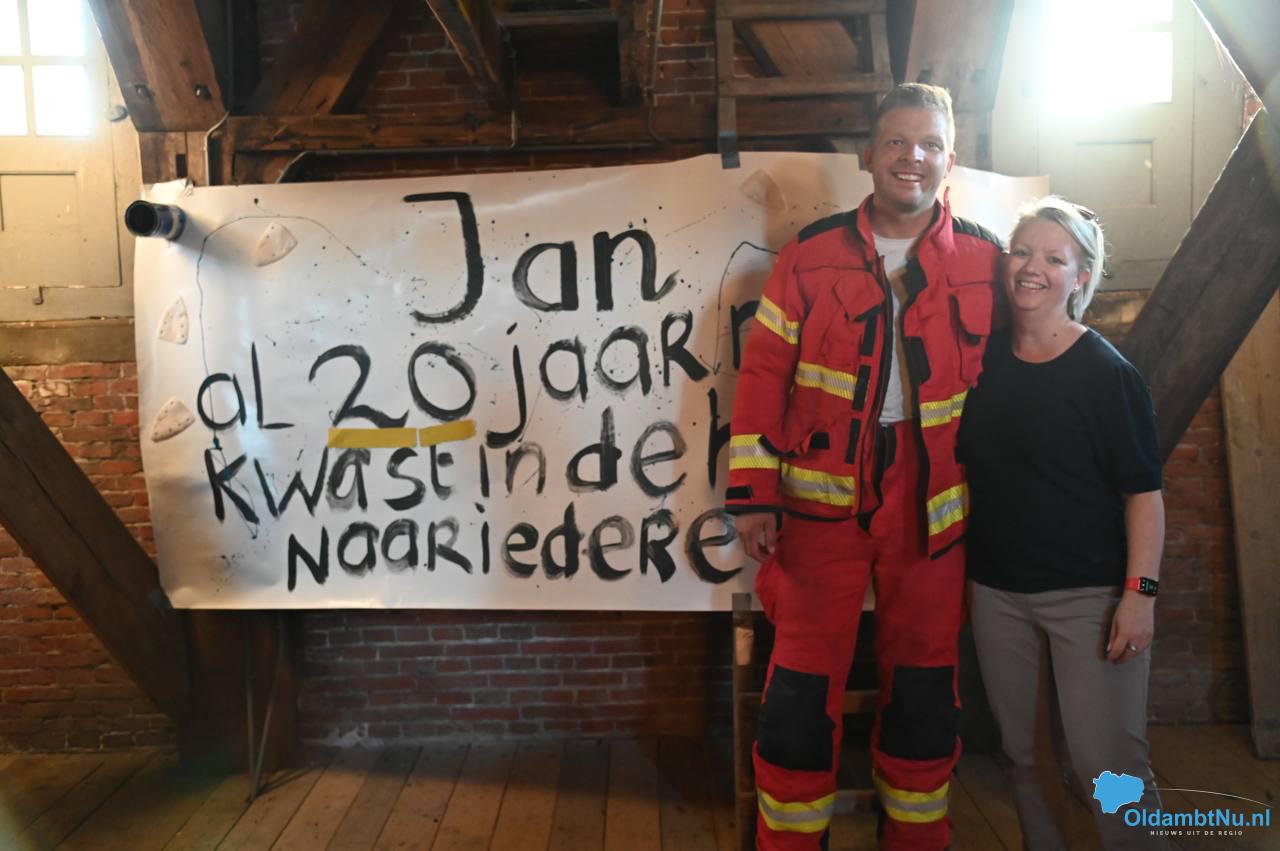 Jan
al 20 jaar
kwast in de
naar iedere
OldambtNu.nl
NIEUWS UIT DE REGIO